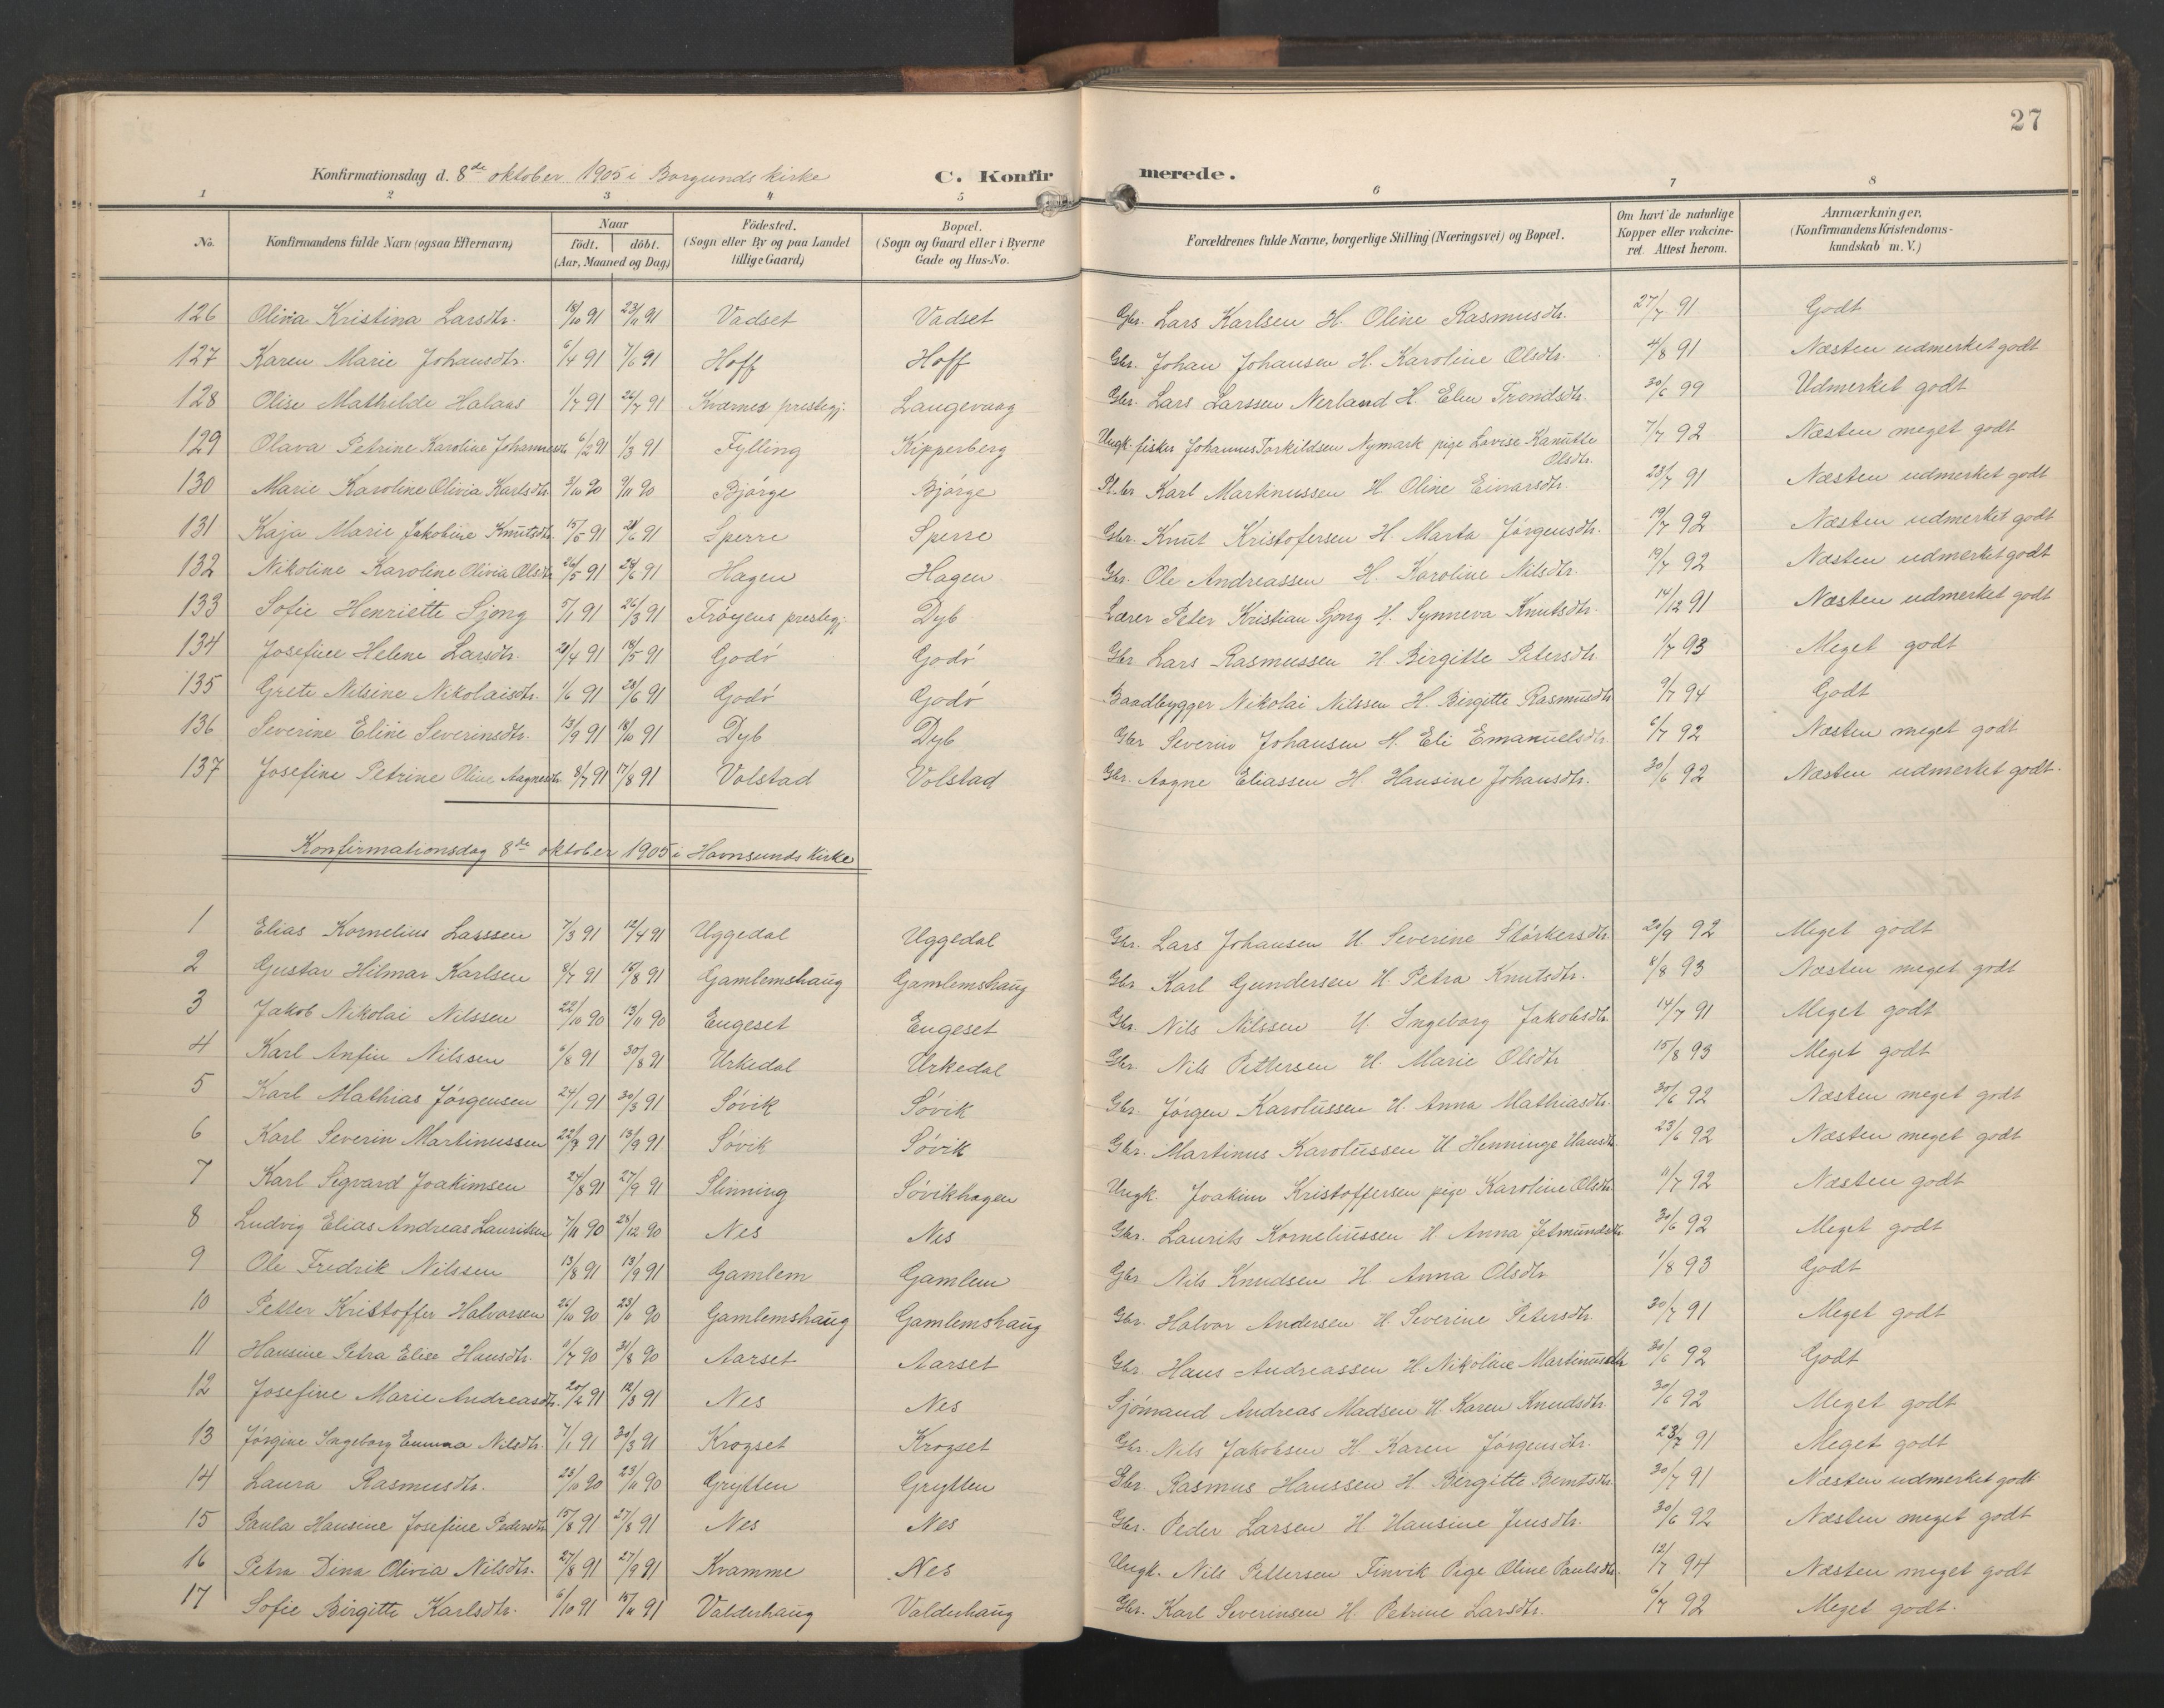 27
Konfirmationsdag d. 8de oktober 1905 i Borgunds kirke C. Konfirmerede.
1 2 3 4 5 6 7 8
No. Konfirmandens fulde Navn (ogsaa Efternavn) Naar født. døbt. (Aar, Maaned og Dag) Fødested. (Sogn eller By og paa Landet tillige Gaard) Bopæl. (Sogn og Gaard eller i Byerne Gade og Hus-No. Forældrenes fulde Navne, borgerlige Stilling (Næringsvei) og Bopæl. Om havt de naturlige Kopper eller vakcineret. Attest herom. Anmærkninger. (Konfirmandens Kristendomskundskab m. V.)
126 Olivia Kristina Larsdtr. 18/10 91 23/11 91 Vadset Vadset Gbr. Lars Karlsen H. Oline Rasmusdtr. 27/7 91 Godt
127 Karen Marie Johansdtr. 6/4 91 7/6 91 Hoff Hoff Gbr. Johan Johansen H. Karoline Olsdtr. 4/8 91 Næsten udmerket godt
128 Olise Mathilde Halaas 1/7 91 26/7 91 Kvernes prestegj. Langevaag Gbr. Lars Larssen Nerland H. Elen Trondsdtr. 30/6 99 Udmerket godt
129 Olava Petrine Karoline Johannesdtr 6/2 91 1/3 91 Fylling Kipperberg Ungk. fisker Johannes Torkildsen Nymark pige Lovise Kanutte Olsdtr. 7/7 92 Næsten meget godt
130 Marie Karoline Olivia Karlsdtr 3/10 90 9/11 90 Bjørge Bjørge Pl.br Karl Martinussen H. Oline Eivarsdtr. 23/7 91 Næsten udmerket godt
131 Kaja Marie Jakobine Knutsdtr. 15/5 91 21/6 91 Sperre Sperre Gbr. Knut Kristofersen H. Marta Jørgensdtr. 19/7 92 Næsten udmerket godt
132 Nikoline Karoline Olivia Olsdtr 26/5 91 28/6 91 Hagen Hagen Gbr. Ole Andreassen H. Karoline Nilsdtr. 19/7 92 Næsten udmerket godt
133 Sofie Henriette Sjong 5/1 91 26/3 91 Frøyens prestegj. Dyb Lærer Peter Kristian Sjong H. Synneva Knutsdtr. 14/12 91 Næsten udmerket godt
134 Josefine Helene Larsdtr. 21/4 91 18/5 91 Godø Godø Gbr Lars Rasmussen H Birgitte Petersdtr 1/7 93 Meget godt
135 Grete Nilsine Nikolaisdtr. 1/6 91 28/6 91 Godø Godø Baadbygger Nikolai Nilssen H. Birgitte Rasmusdtr 9/7 94 Godt
136 Severine Eline Severinsdtr. 13/9 91 18/10 91 Dyb Dyb Gbr Severin Johansen H. Eli Emanuelsdtr. 6/7 92 Næsten meget godt
137 Josefine Petrine Oline Aagnesdtr 8/7 91 17/8 91 Volstad Volstad Gbr. Aagne Eliassen H. Hansine Johansdtr. 30/6 92 Næsten udmerket godt.
Konfirmationsdag 8de oktober 1905 i Hamsunds kirke
1 Elias Kornelius Larssen 7/3 91 12/4 91 Uggedal Uggedal Gbr. Lars Johansen H Severine Størkersdtr. 20/9 92 Meget godt
2 Gustav Hilmar Karlsen 8/7 91 15/8 91 Gamlemshaug Gamlemshaug Gbr Karl Gundersen H. Petra Knutsdtr. 8/8 93 Næsten meget godt
3 Jakob Nikolai Nilssen 22/10 90 13/11 90 Engeset Engeset Gbr. Nils Nilssen H Ingeborg Jakobsdtr. 14/7 91 Meget godt
4 Karl Anfin Nilssen 6/8 91 30/8 91 Urkedal Urkedal Gbr. Nils Pettersen H. Marie Olsdtr 15/8 93 Meget godt
5 Karl Mathias Jørgensen 24/1 91 30/3 91 Søvik Søvik Gbr. Jørgen Karolussen H. Anna Mathiasdtr. 30/6 92 Næsten meget godt
6 Karl Severin Martinussen 22/8 91 13/9 91 Søvik Søvik Gbr. Martinus Karolussen H Henninge Hansdtr. 23/6 92 Næsten meget godt
7 Karl Sigvard Joakimsen 24/8 91 27/9 91 Slinning Søvikhagen Ungk. Joakim Kristoffersen pige Karoline Olsdtr 11/7 92 Næsten godt
8 Ludvig Elias Andreas Lauritsen 7/11 90 28/12 90 Nes Nes Gbr. Laurits Korneliussen H Anna Jetmundsdtr. 30/6 92 Meget godt
9 Ole Fredrik Nilssen 13/8 91 13/9 91 Gamlem Gamlem Gbr Nils Knudsen H Anna Olsdtr 1/8 93 Godt
10 Petter Kristoffer Halvorsen 26/10 90 23/11 90 Gamlemshaug Gamlemshaug Gbr. Halvor Andersen H. Severine Petersdtr. 30/7 91 Meget godt
11 Hansine Petra Elise Hansdtr. 9/7 90 31/8 90 Aarset Aarset Gbr. Hans Andreassen H. Nikoline Martinusdtr 30/6 92 Godt
12 Josefine Marie Andreasdtr. 20/2 91 12/3 91 Nes Nes Sjømand Andreas Madsen H. Karen Knudsdtr. 30/6 92 Meget godt
13 Jørgine Ingeborg Emma Nilsdtr. 7/1 91 30/3 91 Krogset Krogset Gbr. Nils Jakobsen H. Karen Jørgensdtr. 23/7 91 Meget godt
14 Laura Rasmusdtr. 23/10 90 23/11 90 Grytten Grytten Gbr. Rasmus Hanssen H. Birgitte Berntsdtr. 30/7 91 Næsten udmerket godt
15 Paula Hansine Josefine Pedersdtr 15/8 91 27/8 91 Nes Nes Gbr. Peder Larsen H Hansine Jensdtr. 30/6 92 Næsten meget godt
16 Petra Dina Olivia Nilsdtr. 27/8 91 27/9 91 Kvamme Nes Ungk. Nils Pettersen Finvik Pige Oline Paulsdtr. 12/7 94 Næsten meget godt
17 Sofie Birgitte Karlsdtr. 6/10 91 15/11 91 Valderhaug Valderhaug Gbr. Karl Severinsen H. Petrine Larsdtr. 6/7 92 Meget godt.